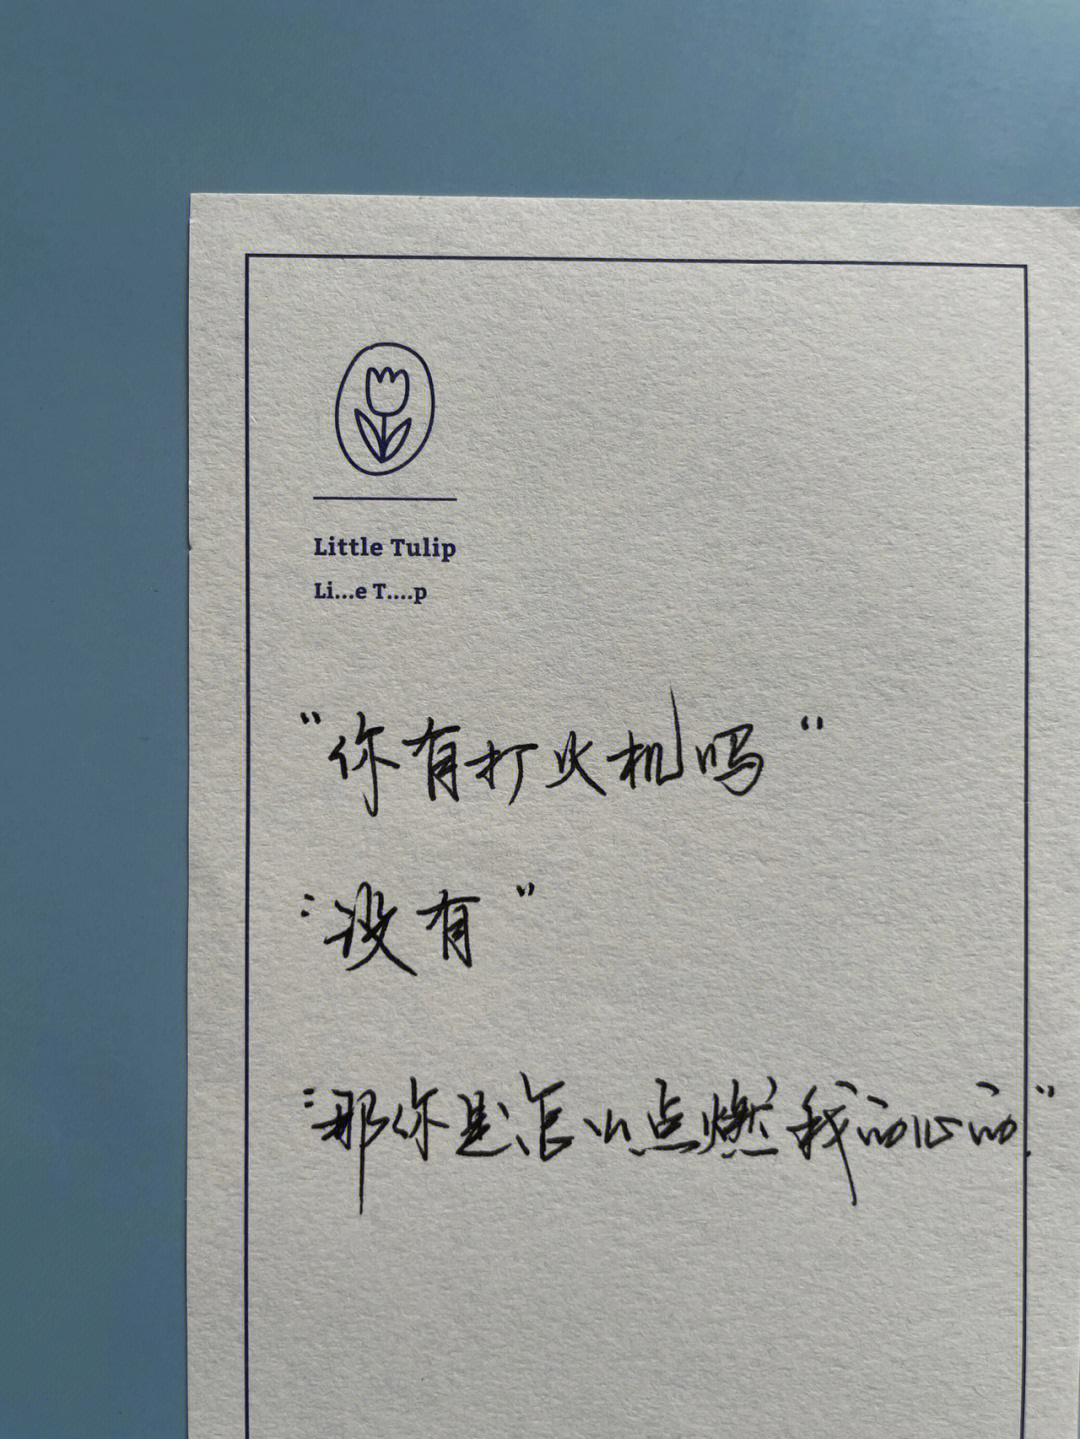 Little Tulip
Li...e T....p
“你有打火机吗“
“没有”
“那你是怎么点燃我的心的”